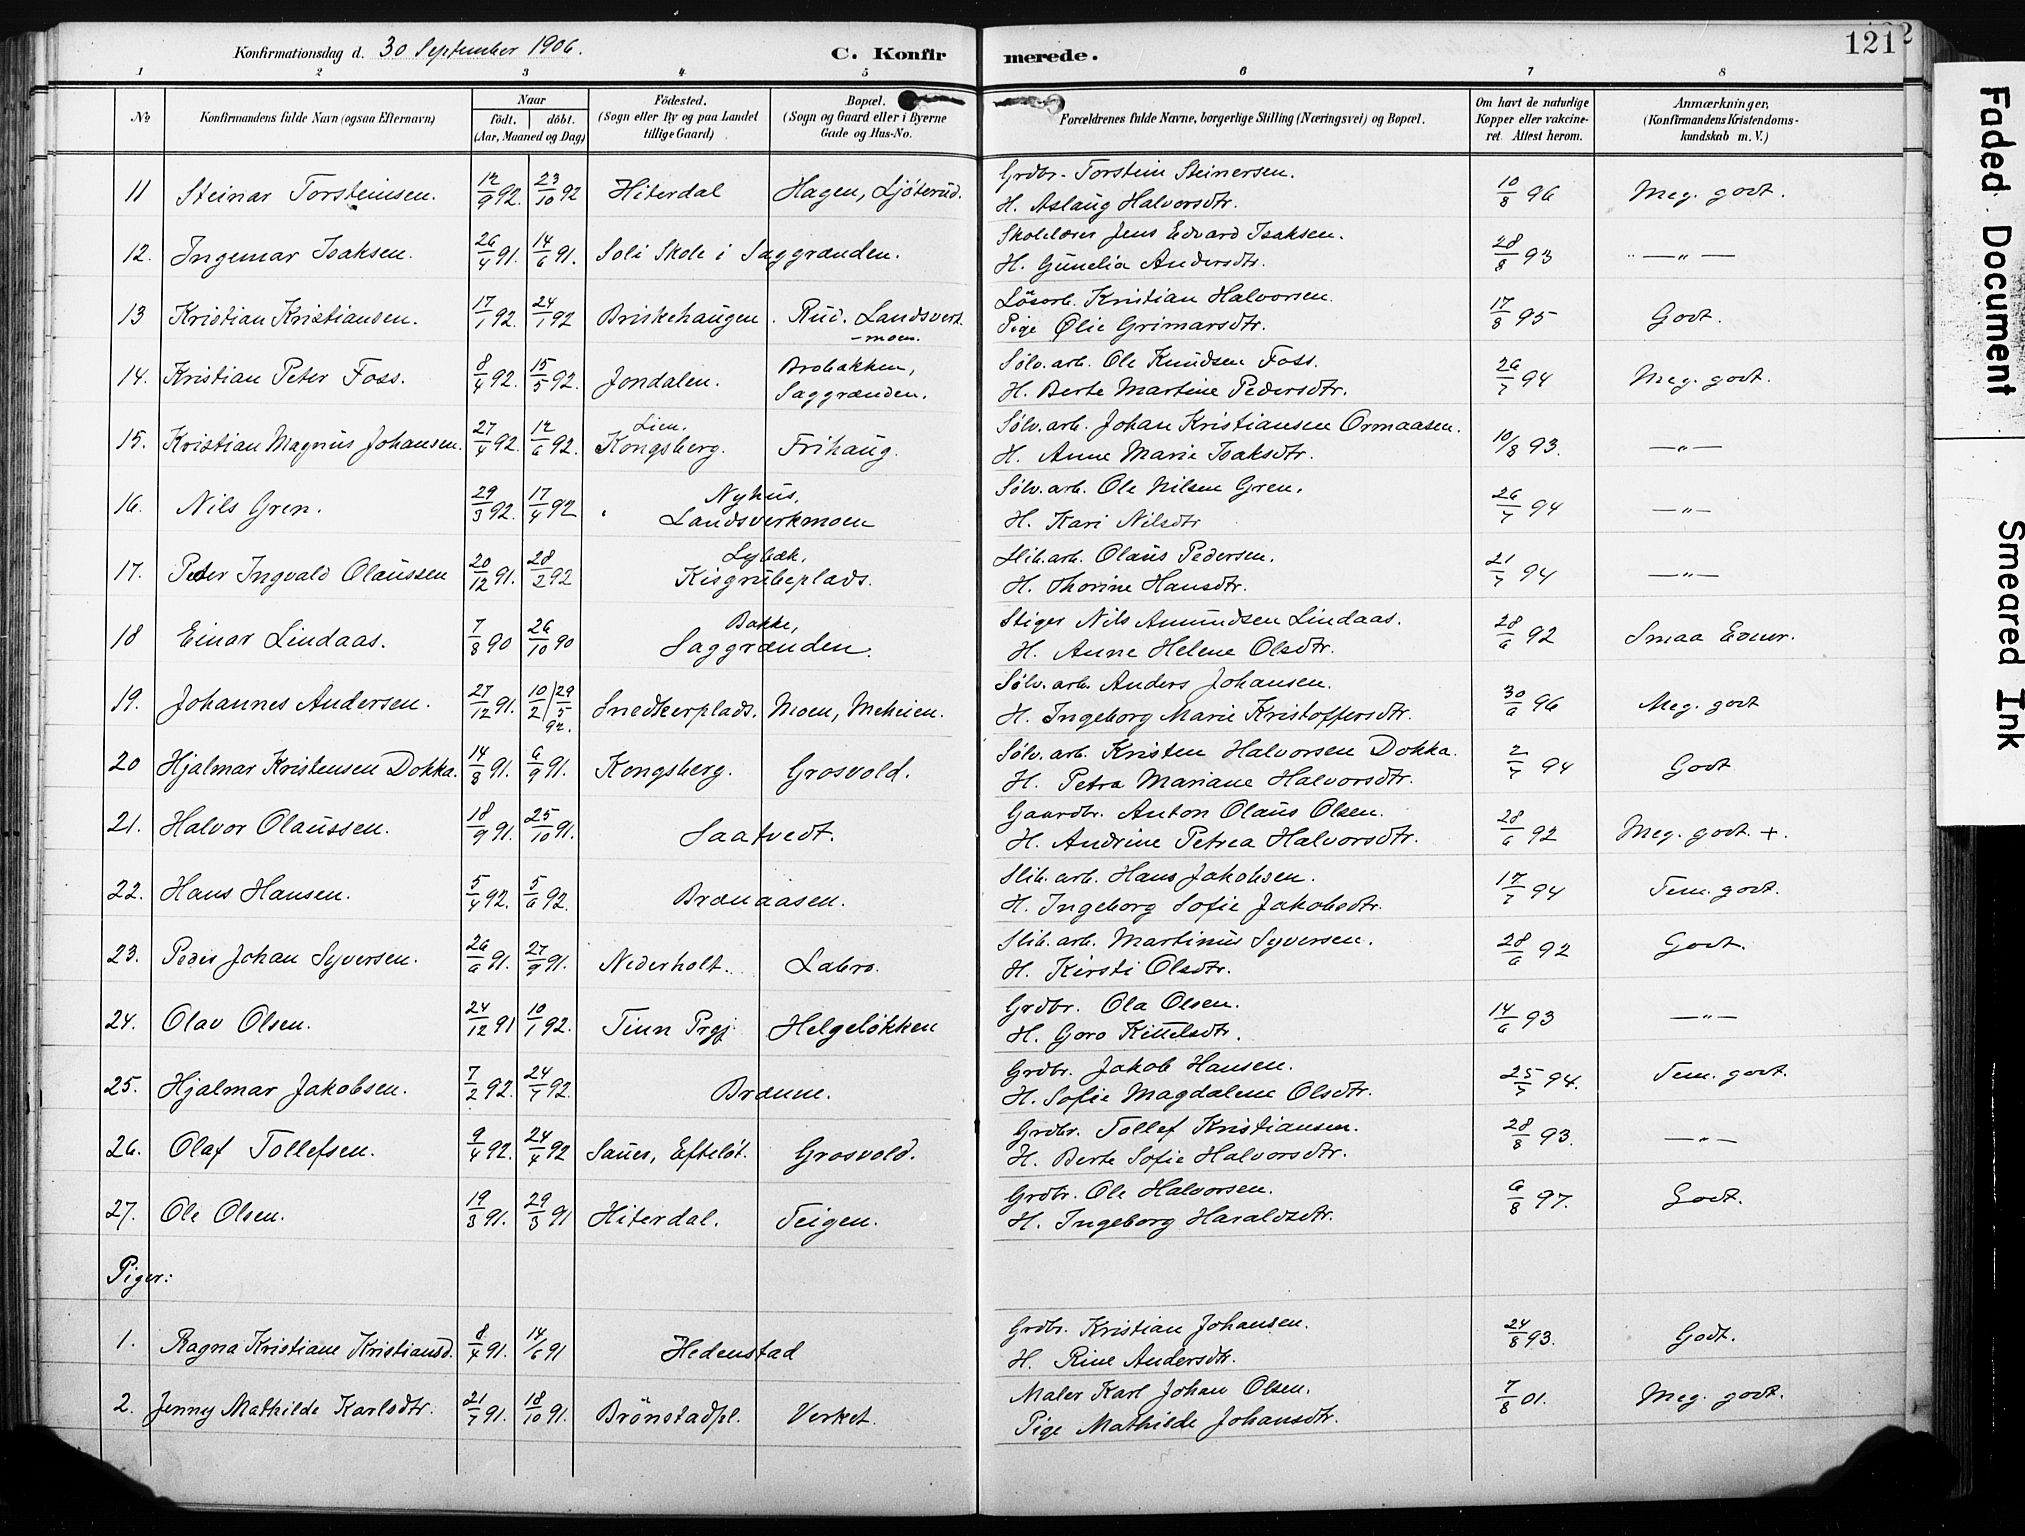 Konfirmationsdag d. 30 September 1906. C. Konfirmerede. 121
1 2 3 4 5 6 7 8
No Konfirmandens fulde Navn (ogsaa Efternavn) Naar født. døbt. (Aar, Maaned og Dag) Fødested. (Sogn eller By og paa Landet tillige Gaard) Bopæl. (Sogn og Gaard eller i Byerne Gade og Hus-No. Forældrenes fulde Navne, borgerlige Stilling (Næringsvei) og Bopæl. Om havt de naturlige Kopper eller vakcineret. Attest herom. Anmærkninger, (Konfirmandens Kristendomskundskab m. V.)
11 Steinar Torsteinsen. 12/9 92. 23/10 92 Hiterdal Hagen, Ljöterud. Grdbr. Torstein Steinersen. H. Aslaug Halvorsdtr. 10/8 96 Meg. godt.
12. Ingemar Isaksen. 26/4 91. 14/6 91. Soli Skole i Saggrænden. Skolelærer Jens Edvard Isaksen. H. Gunelia Andersdtr. 28/8 93 — „ —
13 Kristian Kristiansen. 17/1 92. 24/1 92 Briskehaugen. Rud. Landsverkmoen. Lösarb. Kristian Halvorsen. Pige Ølie Grimarsdtr. 17/8 95 Godt.
14. Kristian Peter Foss. 8/4 92. 15/5 92. Jondalen. Brobakken, Saggrænden. Sølv. arb. Ole Knudsen Foss. H. Berte Martine Pedersdtr. 26/7 94 Meg. godt.
15. Kristian Magnus Johansen. 27/4 92. 12/6 92. Lien. Kongsberg. Frihaug. Sølv. arb. Johan Kristiansen Ormaasen. H. Anne Marie Isaksdtr. 10/8 93. — „ —
16. Nils Gren. 29/3 92. 17/4 92 Nyhus, Landsverkmoen Sølv. arb. Ole Nilsen Gren. H. Kari Nilsdtr 26/7 94 — „ —
17. Peder Ingvald Olaussen 20/12 91. 28/2 92 Lybæk, Kisgrubeplads. Slib. arb. Olaus Pedersen. H. Thorine Hansdtr. 21/7 94 — „ —
18 Einar Lindaas. 7/8 90 26/10 90 Bakke, Saggrænden. Stiger Nils Amundsen Lindaas. H. Anne Helene Olsdtr. 28/6 92 Smaa Evner.
19. Johannes Andersen. 27/12 91. 10/2 / 29/5 92. Snedkerplads. Moen, Meheien. Sølv. arb. Anders Johansen. H. Ingeborg Marie Kristoffersdtr. 30/6 96 Meg. godt
20 Hjalmar Kristensen Dokka. 14/8 91. 6/9 91. Kongsberg. Grosvold. Sølv. arb. Kristen Halvorsen Dokka. H. Petra Mariane Halvorsdtr. 2/7 94 Godt
21. Halvor Olaussen. 18/9 91. 25/10 91. Saatvedt. Gaardbr. Anton Olaus Olsen. H. Andrine Petrea Halvorsdtr. 28/6 92 Meg. godt. +.
22. Hans Hansen. 5/4 92. 5/6 92. Brænaasen. Slib. arb. Hans Jakobsen. H. Ingeborg Sofie Jakobsdtr. 17/7 94 Tem. godt.
23. Peder Johan Syversen. 26/6 91. 27/9 91. Nederholt. Labro. Slib. arb. Martinus Syversen. H. Kirsti Olsdtr. 28/6 92 Godt.
24. Olav Olsen. 24/12 91 10/1 92. Tinn Prgj. Helgeløkken Grdbr. Ola Olsen. H. Goro Kittelsdtr. 14/6 93 — „ —
25. Hjalmar Jakobsen. 7/2 92. 24/4 92. Brænne. Grdbr. Jakob Hansen. H. Sofie Magdalene Olsdtr. 25/7 94. Tem. godt.
26. Olaf Tollefsen. 9/4 92. 24/4 92 Saues, Efteløt. Grosvold. Grdbr. Tollef Kristiansen. H. Berte Sofie Halvorsdtr. 28/8 93. — „ —
27. Ole Olsen. 19/3 91. 29/3 91 Hiterdal. Teigen. Grdbr. Ole Halvorsen. H. Ingeborg Haraldsdtr. 6/8 97. Godt.
Piger:
1. Ragna Kristiane Kristiansd. 8/4 91. 14/6 91 Hedenstad Grdbr. Kristian Johansen. H. Rine Andersdtr. 24/8 93. Godt.
2. Jenny Mathilde Karlsdtr. 21/7 91. 18/10 91. Brönstadpl. Verket. Maler Karl Johan Olsen. Pige Mathilde Johansdtr. 7/8 01. Meg. godt.
Faded Document
Smeared Ink